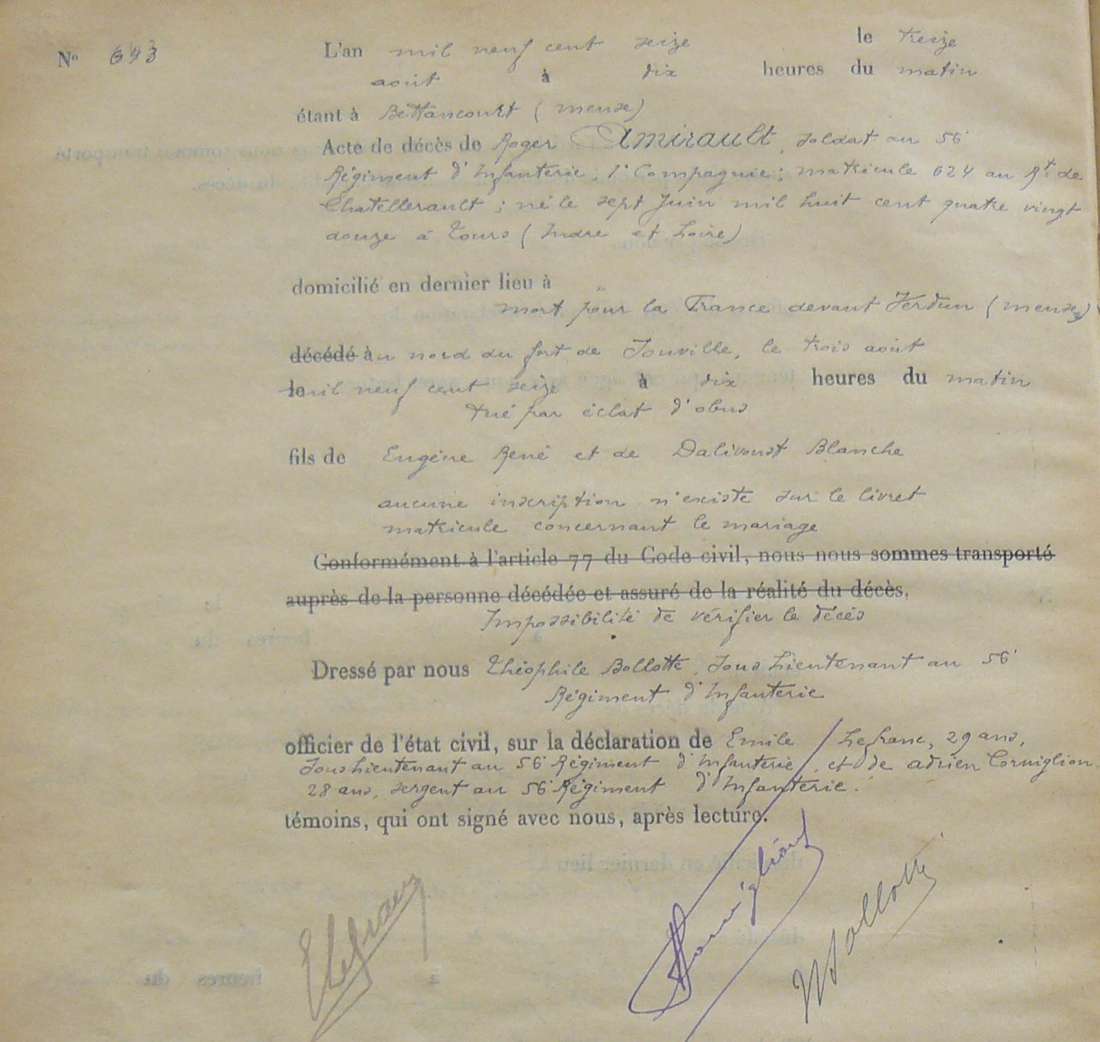 N° 693 L'an mil neuf cent seize le treize
août à dix heures du matin
étant à Bettancourt (meuse)
Acte de décès de Roger Amirault, soldat au 56e
Régiment d'Infanterie, 1e Compagnie; matricule 624 au Rt de
Chatellerault; né le sept Juin mil huit cent quatre vingt
douze à Tours (Indre et Loire)
domicilié en dernier lieu à
mort pour la France devant Verdun (meuse)
décédé à au nord du fort de Souville, le trois août
le mil neuf cent seize à dix heures du matin
tué par éclat d'obus
fils de Eugène René et de Dalivoust Blanche
aucune inscription n'existe sur le livret
matricule concernant le mariage
Conformément à l'article 77 du Code civil, nous nous sommes transporté
auprès de la personne décédée et assuré de la réalité du décès.
Impossibilité de vérifier le décès
Dressé par nous Théophile Bollotte, Sous Lieutenant au 56e
Régiment d'Infanterie
officier de l'état civil, sur la déclaration de Emile Lefranc, 29 ans,
Sous Lieutenant au 56e Régiment d'Infanterie, et de adrien Corniglion
28 ans, sergent au 56e Régiment d'Infanterie.
témoins, qui ont signé avec nous, après lecture.
ELefranc Corniglion Bollotte